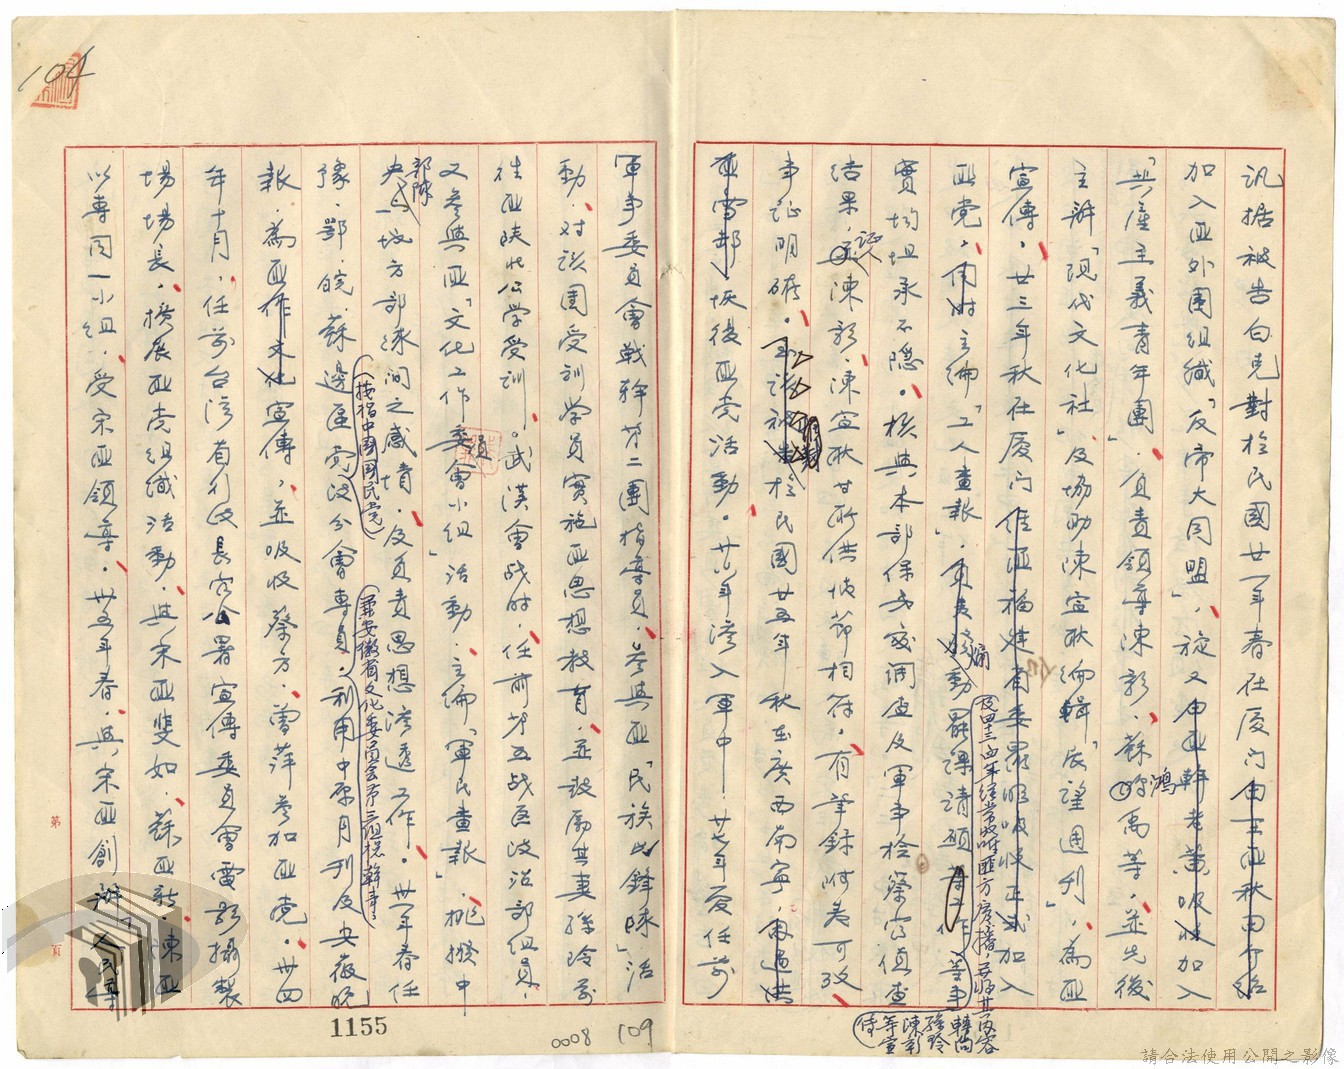 104
訊据被告白克對於民國廿一年春在厦门由王匪秋田介紹
加入匪外圍組織「反帝大同盟」，旋又由匪幹老黃吸收加入
「共產主義青年團」，負責領導陳影、蘇鴻禹等，並先後
主辦「現代文化社」及協助陳宣耿編輯「展望週刊」，為匪
宣傳，廿三年秋在厦门經匪福建省委羅明吸收正式加入
匪党，同時主編「工人畫報」，負責煽動罷課請願等工作等事
及四十三、四年經常收听匪方廣播，並將其內容
轉尚孫玲陳影等
實均坦承不隱。核與本部保安處調查及軍事檢察官偵查
結果，証人陳影、陳宣耿甘所供情節相符，有筆錄附卷可攷
事証明確。被告於民國廿五年秋在廣西南寧，
匪雷部恢復匪党活動。廿六年潛入軍中，廿七年夏任前
軍事委員會戰幹第二團指導員，參與匪「民族先鋒隊」活
動，對該團受訓学員實施匪思想教育，並鼓勵其妻孫玲前
往匪陝北公学受訓。武漢會战時，任前第五战區政治部組員，
又參與匪「文化工作委員會小組」活動，主編「軍民畫報」，挑撥中
央与地方部隊間之感情，及負責思想滲透工作。卅一年春任
豫、鄂、皖、蘇邊區党政分會專員，利用中原月刊及安徽晚
（按指中國國民党）
（兼安徽省文化委員會第三組總幹事）
報，為匪作文化宣傳，並吸收蔡方、曾萍參加匪党。卅四
年十月，任前台湾省行政長官公署宣傳委員會電影攝製
場場長，擴展匪党組織活動，與宋匪斐如、蘇匪新、陳匪
以專同一小組，受宋匪領導。卅五年春，與宋匪創辦「人民導
第 頁
1155
0008
109
請合法使用公開之影像